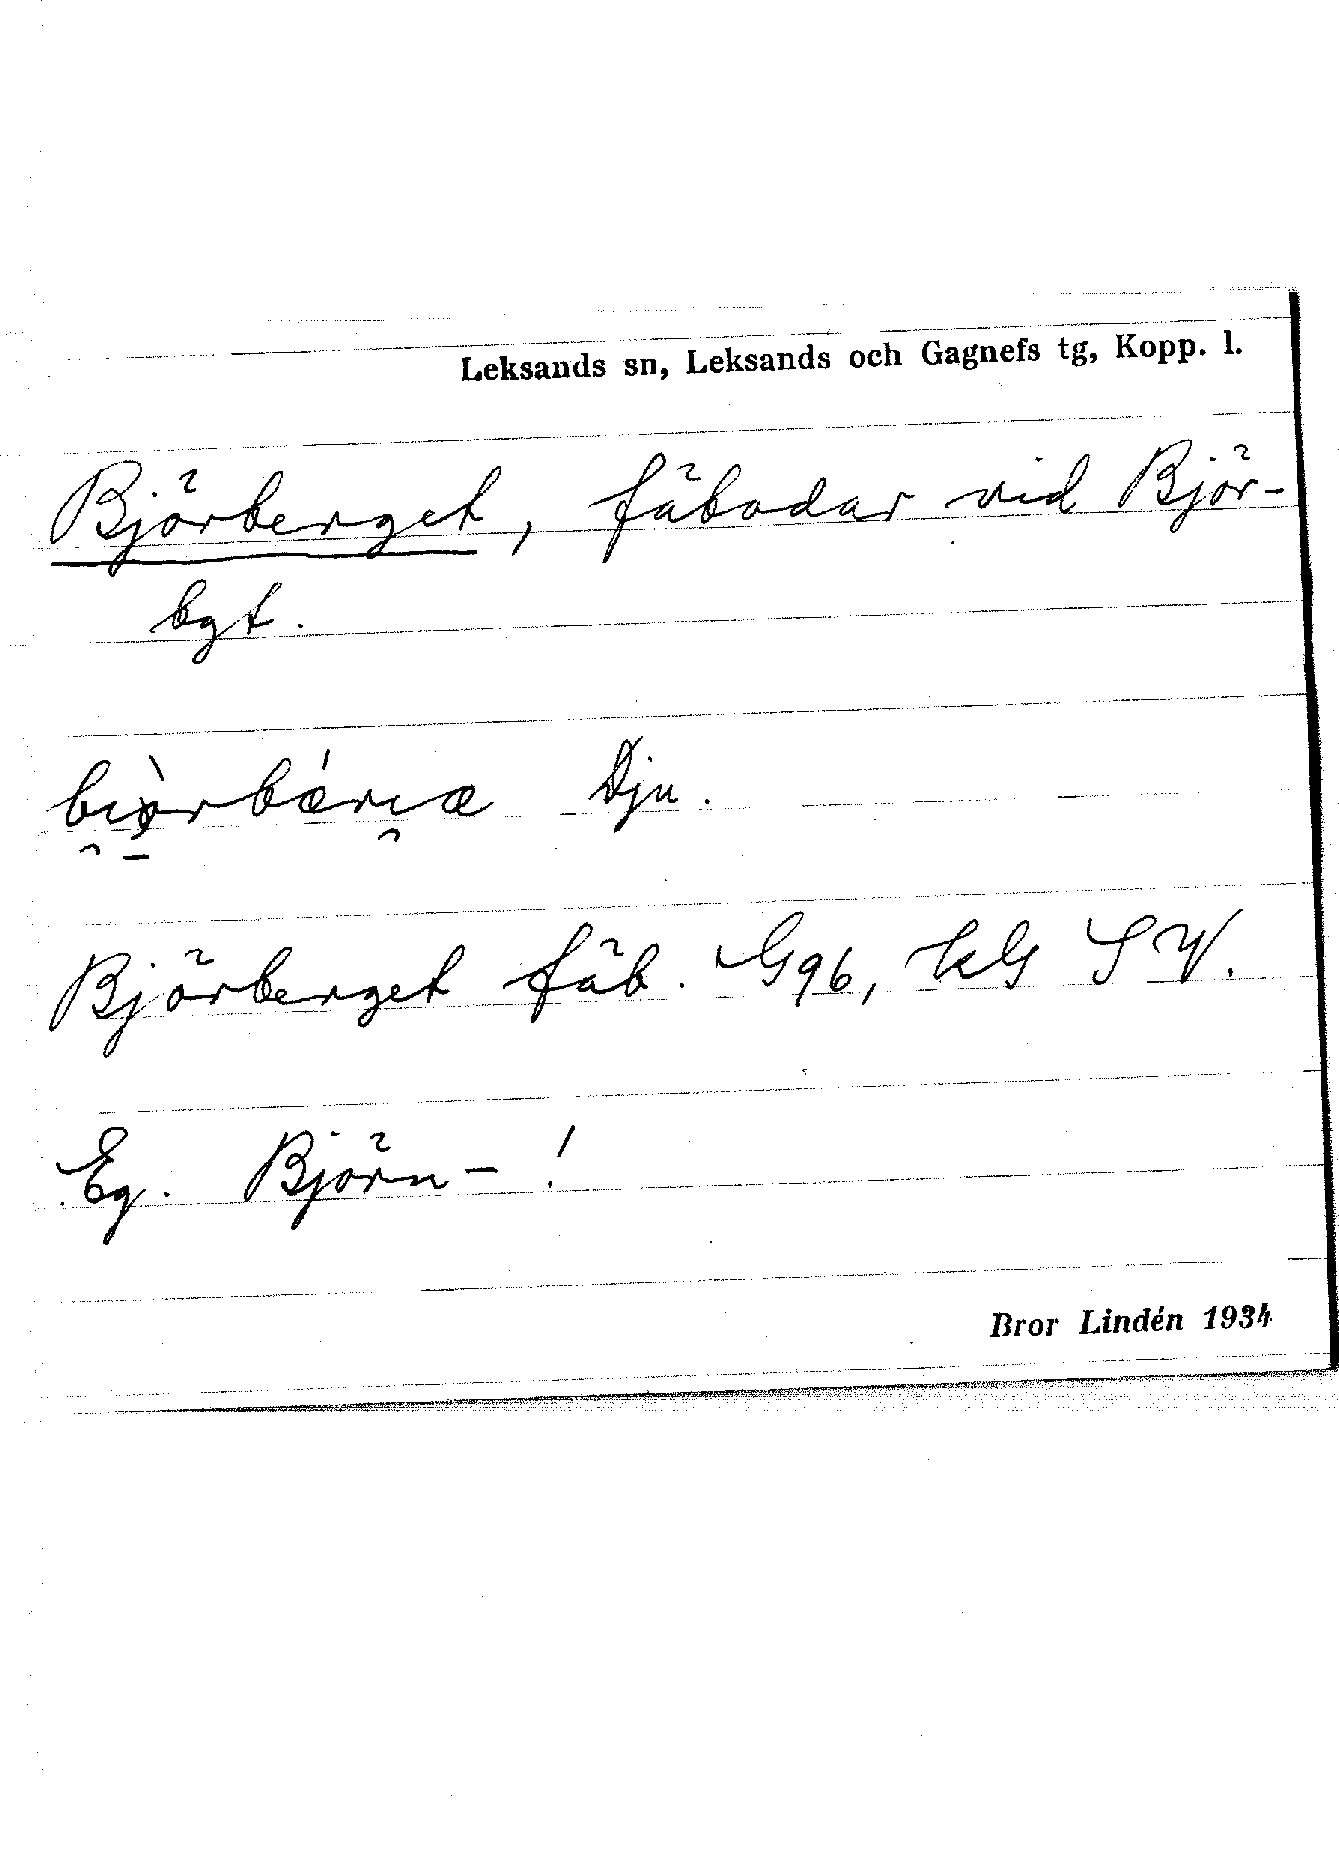 Leksands sn, Leksands och Gagnefs tg, Kopp. l.
Björberget, fäbodar vid Björ-
bgt.
Dju.
Björberget fäb. G96, kG SV.
Eg. Björn- !
Bror Lindén 1934